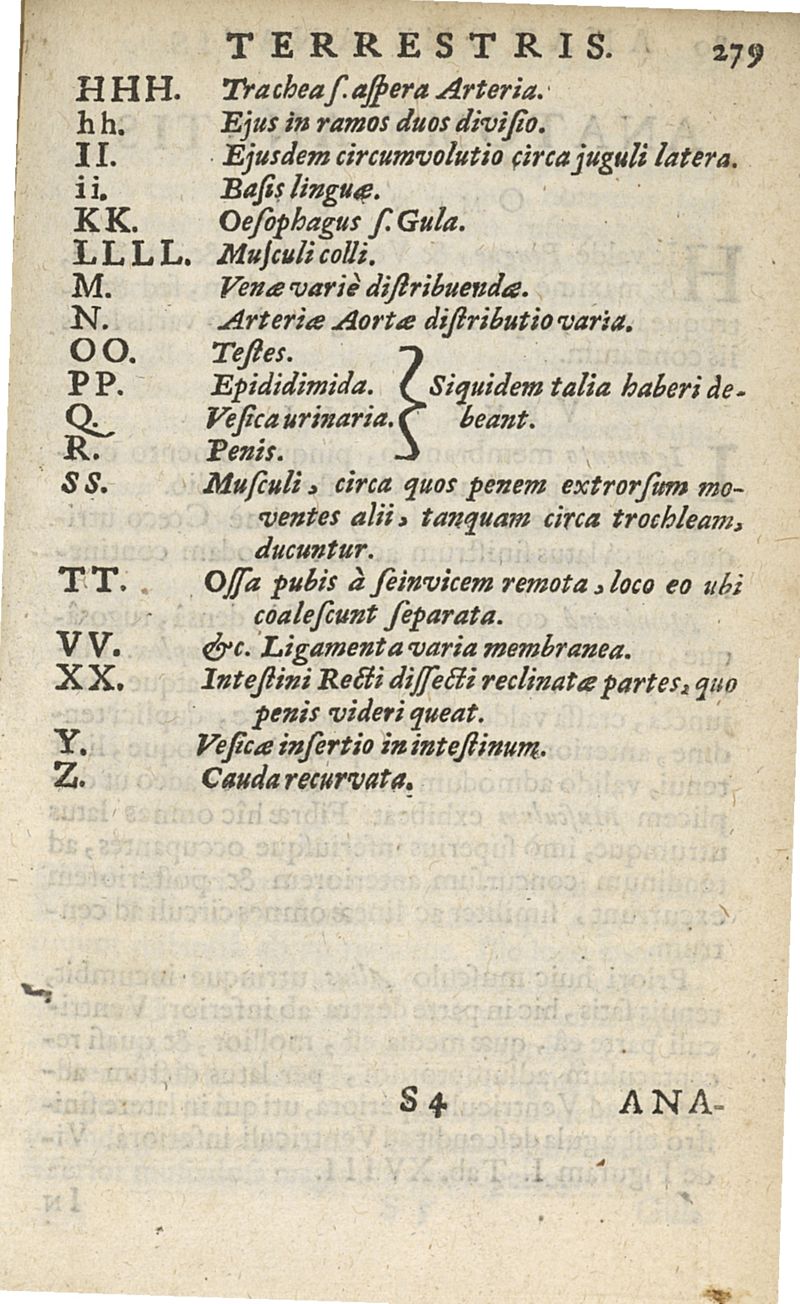 TERRESTRIS. 279
HHH. Trachea ſ. aſpera Arteria.
hh. Ejus in ramos duos diviſio.
II. Ejusdem circumvolutio circa juguli latera.
ii. Baſis linguæ.
KK. Oeſophagus ſ. Gula.
LLLL. Muſculi colli.
M. Venæ variè diſtribuendæ.
N. Arteriæ Aortæ diſtributio varia.
OO. Teſtes.
PP. Epididimida. Siquidem talia haberi de-
Q. Veſica urinaria. beant.
R. Penis.
SS. Muſculi, circa quos penem extrorſum mo-
ventes alii, tanquam circa trochleam,
ducuntur.
TT. Oſſa pubis à ſeinvicem remota, loco eo ubi
coaleſcunt ſeparata.
VV. &c. Ligamenta varia membranea.
XX. Inteſtini Recti diſſecti reclinatæ partes, quo
penis videri queat.
Y. Veſicæ inſertio in inteſtinum.
Z. Cauda recurvata.
S 4 ANA-